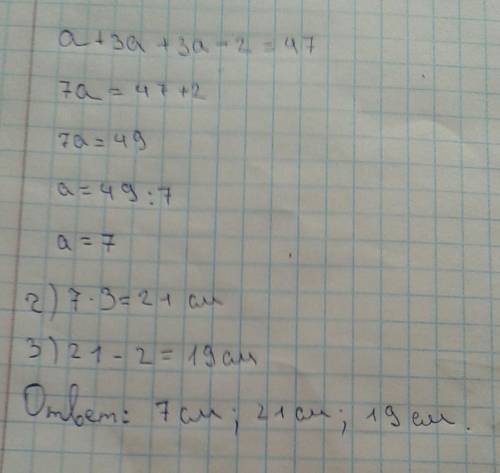 a + 3a + 3a - 2 = 47
7a = 47 + 2
7a = 49
a = 49 : 7
a = 7
2) 7 · 3 = 21 см
3) 21 - 2 = 19 см
Ответ: 7 см; 21 см; 19 см.